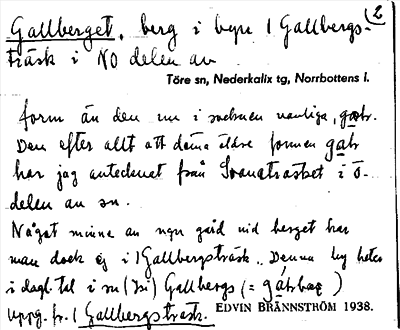 Gallberget, berg i byn 1 Gallbergs-
träsk i NO delen av
2
Töre sn, Nederkalix tg, Norrbottens l.
form än den nu i socknen vanliga, gatr.
Den efter allt att döma äldre formen gatr
har jag antecknat från Svanaträsket i ö.
delen av sn.
Något minne av ngn gård vid berget har
man dock ej i 1 Gallbergsträsk. Denna by heter
i dagl. tal i sn (isi) Gallbergs (= gatrbæ )
Uppg. fr. 1 Gallbergsträsk.
EDVIN BRÄNNSTRÖM 1938.